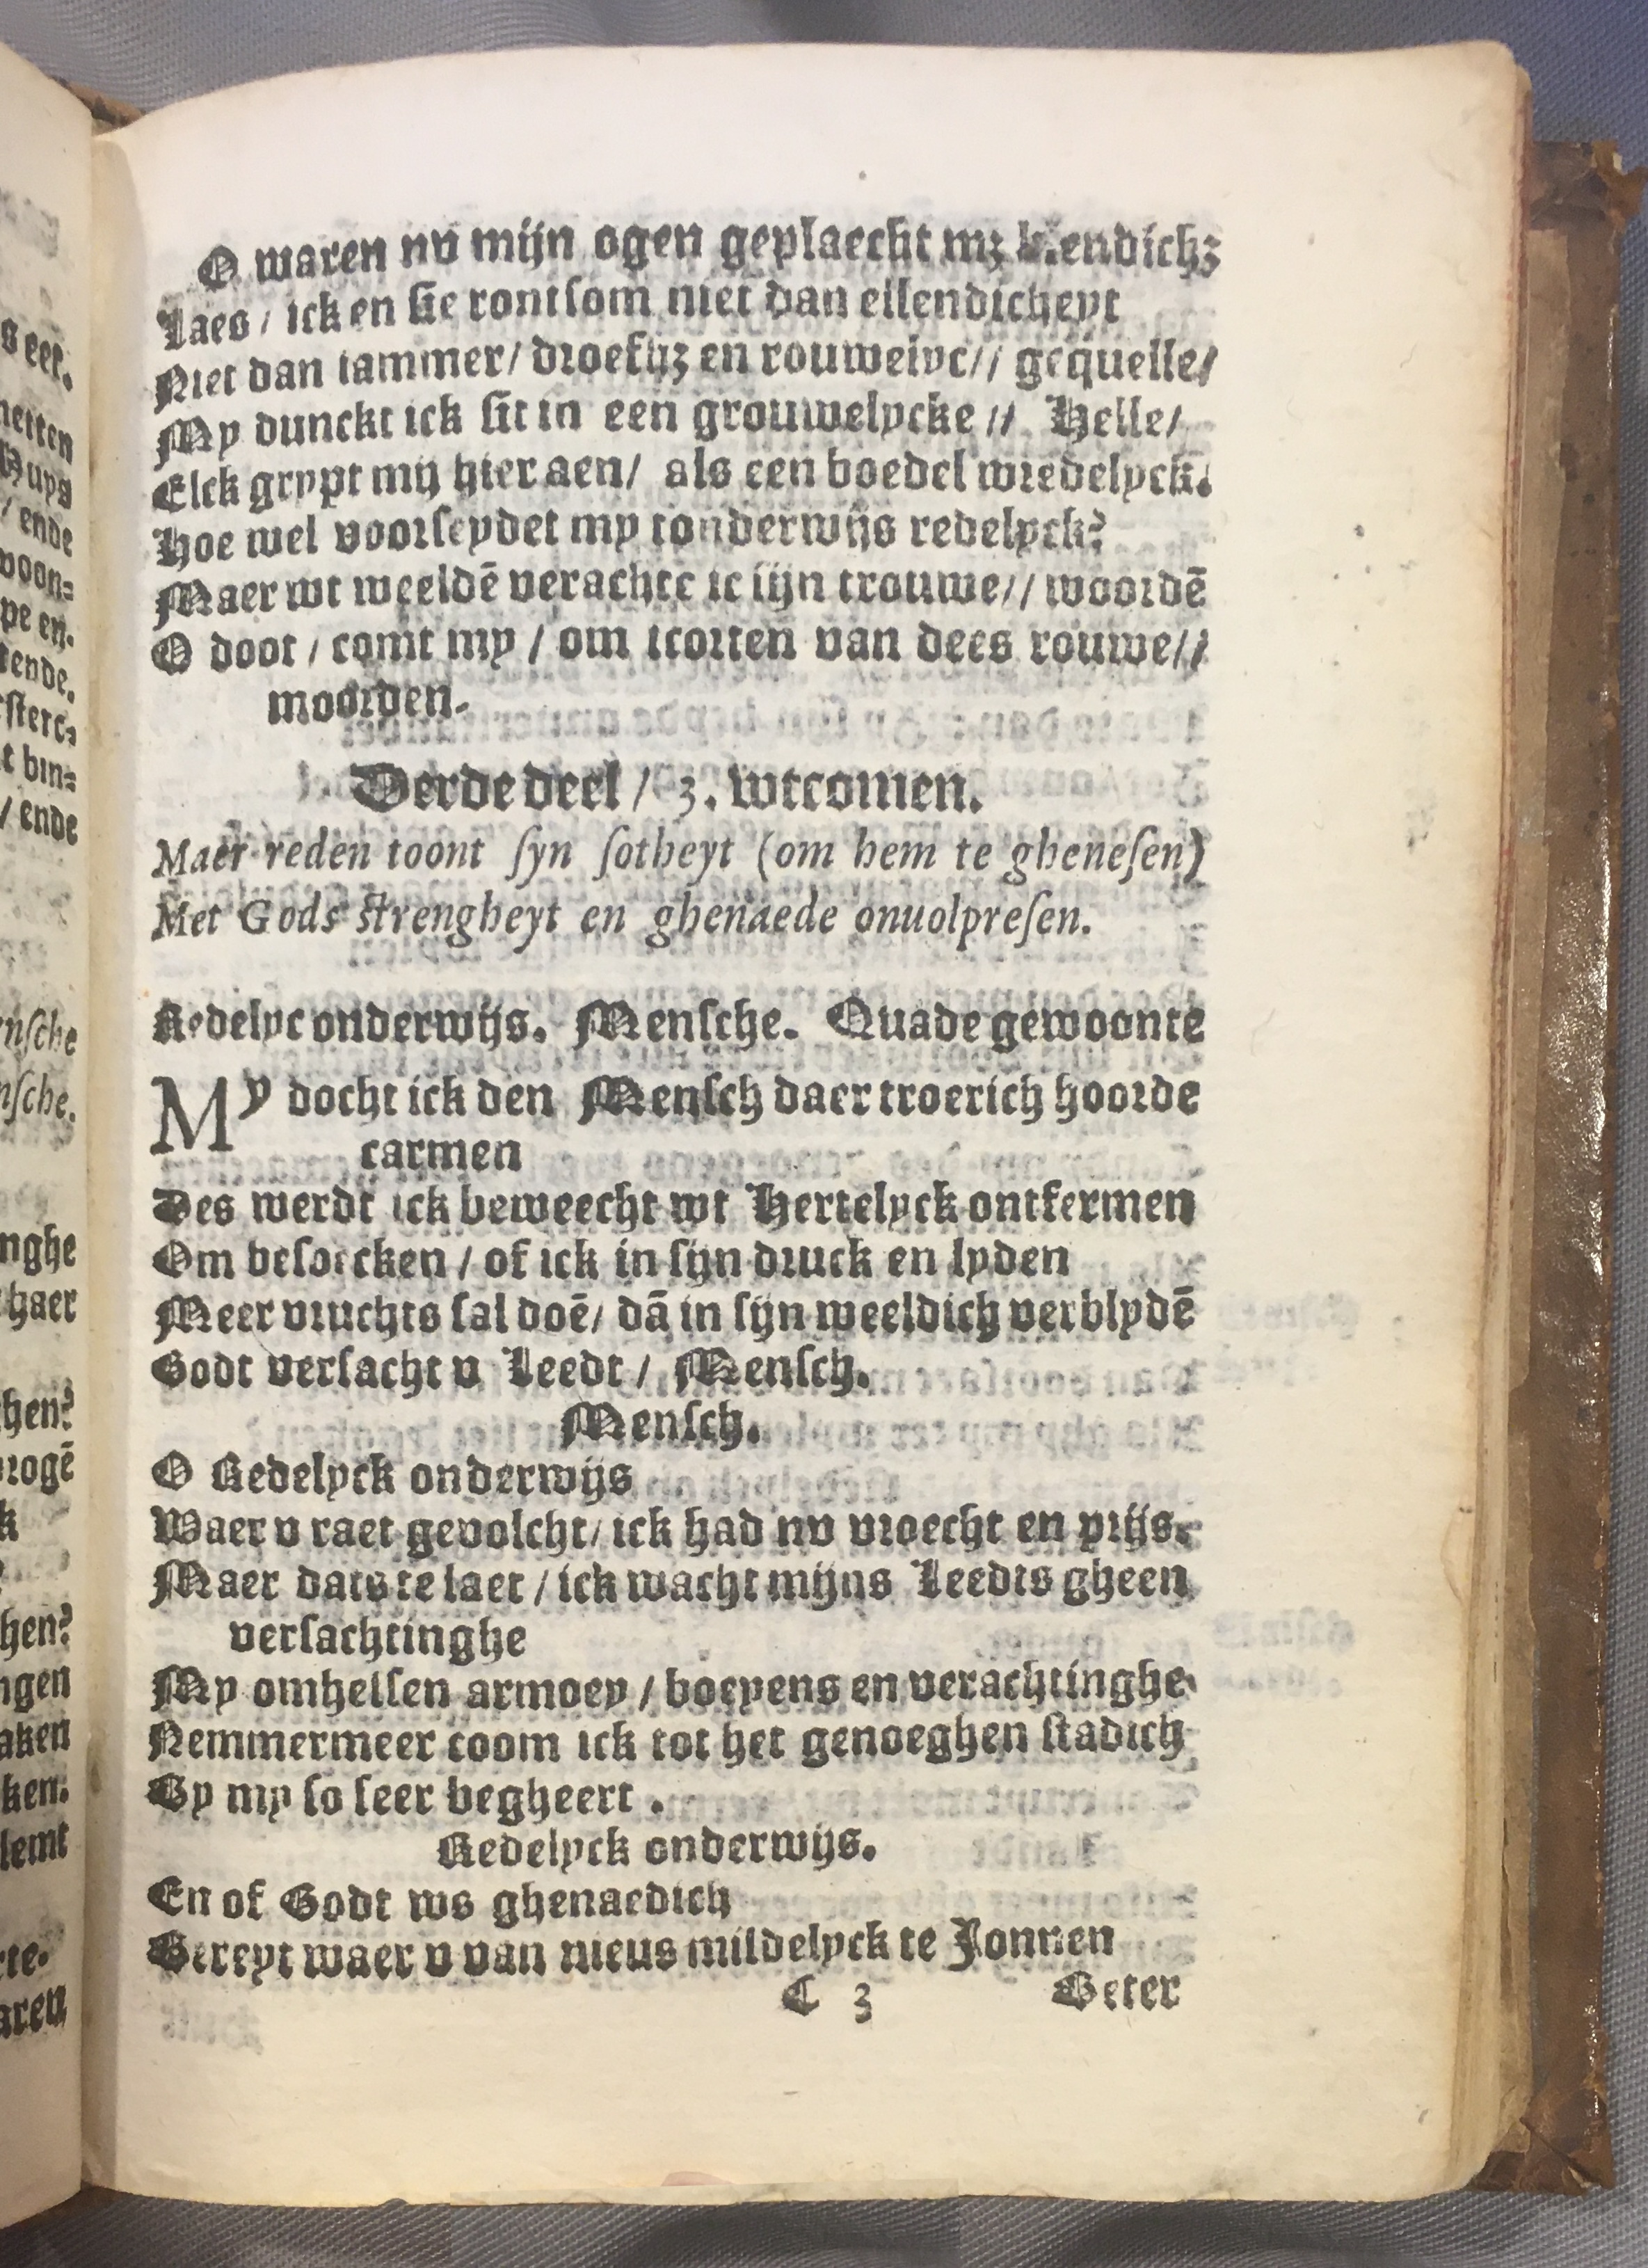 O waren nv mijn ogen geplaecht mꝫ blendichꝫ
Laes / ick en sie rontsom niet dan ellendicheyt
Niet dan iammer / droefhꝫ en rouweivc // gequelle /
My dunckt ick sit in een grouwelycke // Helle /
Elck grypt mij hier aen / als een boedel wredelyck.
Hoe wel voorseydet my tonderwijs redelyck?
Maer wt weeldē verachte ic sijn trouwe // woordē
O doot / comt my / om tcorten van dees rouwe //
moorden.
Derde deel / 3. wtcomen.
Maer reden toont ſyn ſotheyt (om hem te gheneſen)
Met Gods ſtrengheyt en ghenaede onuolpreſen.
Redelyc onderwijs. Mensche. Quade gewoonte
My docht ick den Mensch daer troerich hoorde
carmen
Des werdt ick beweecht wt Hertelyck ontfermen
Om besoecken / of ick in sijn druck en lyden
Meer vruchts sal doē / dā in sijn weeldich verblydē
Godt versacht v Leedt / Mensch.
Mensch.
O Redelyck onderwijs
Waer v raet gevolcht / ick had nv vroecht en prijs.
Maer dats te laet / ick wacht mijns Leedts gheen
versachtinghe
My omhelsen armoey / boeyens en verachtinghe
Nemmermeer coom ick tot het genoeghen stadich
By my so seer begheert .
Redelyck onderwijs.
En of Godt ws ghenaedich
Bereyt waer v van nieus mildelyck te Jonnen
C 3 Beter
s eer.
netten
Huys
/ ende
woon⸗
pe en.
tende.
sterc⸗
t bin⸗
/ ende
nſche
nſche.
nghe
haer
hen?
rogē
k
hen?
ngen
aken
ken.
lemt
te.
aren